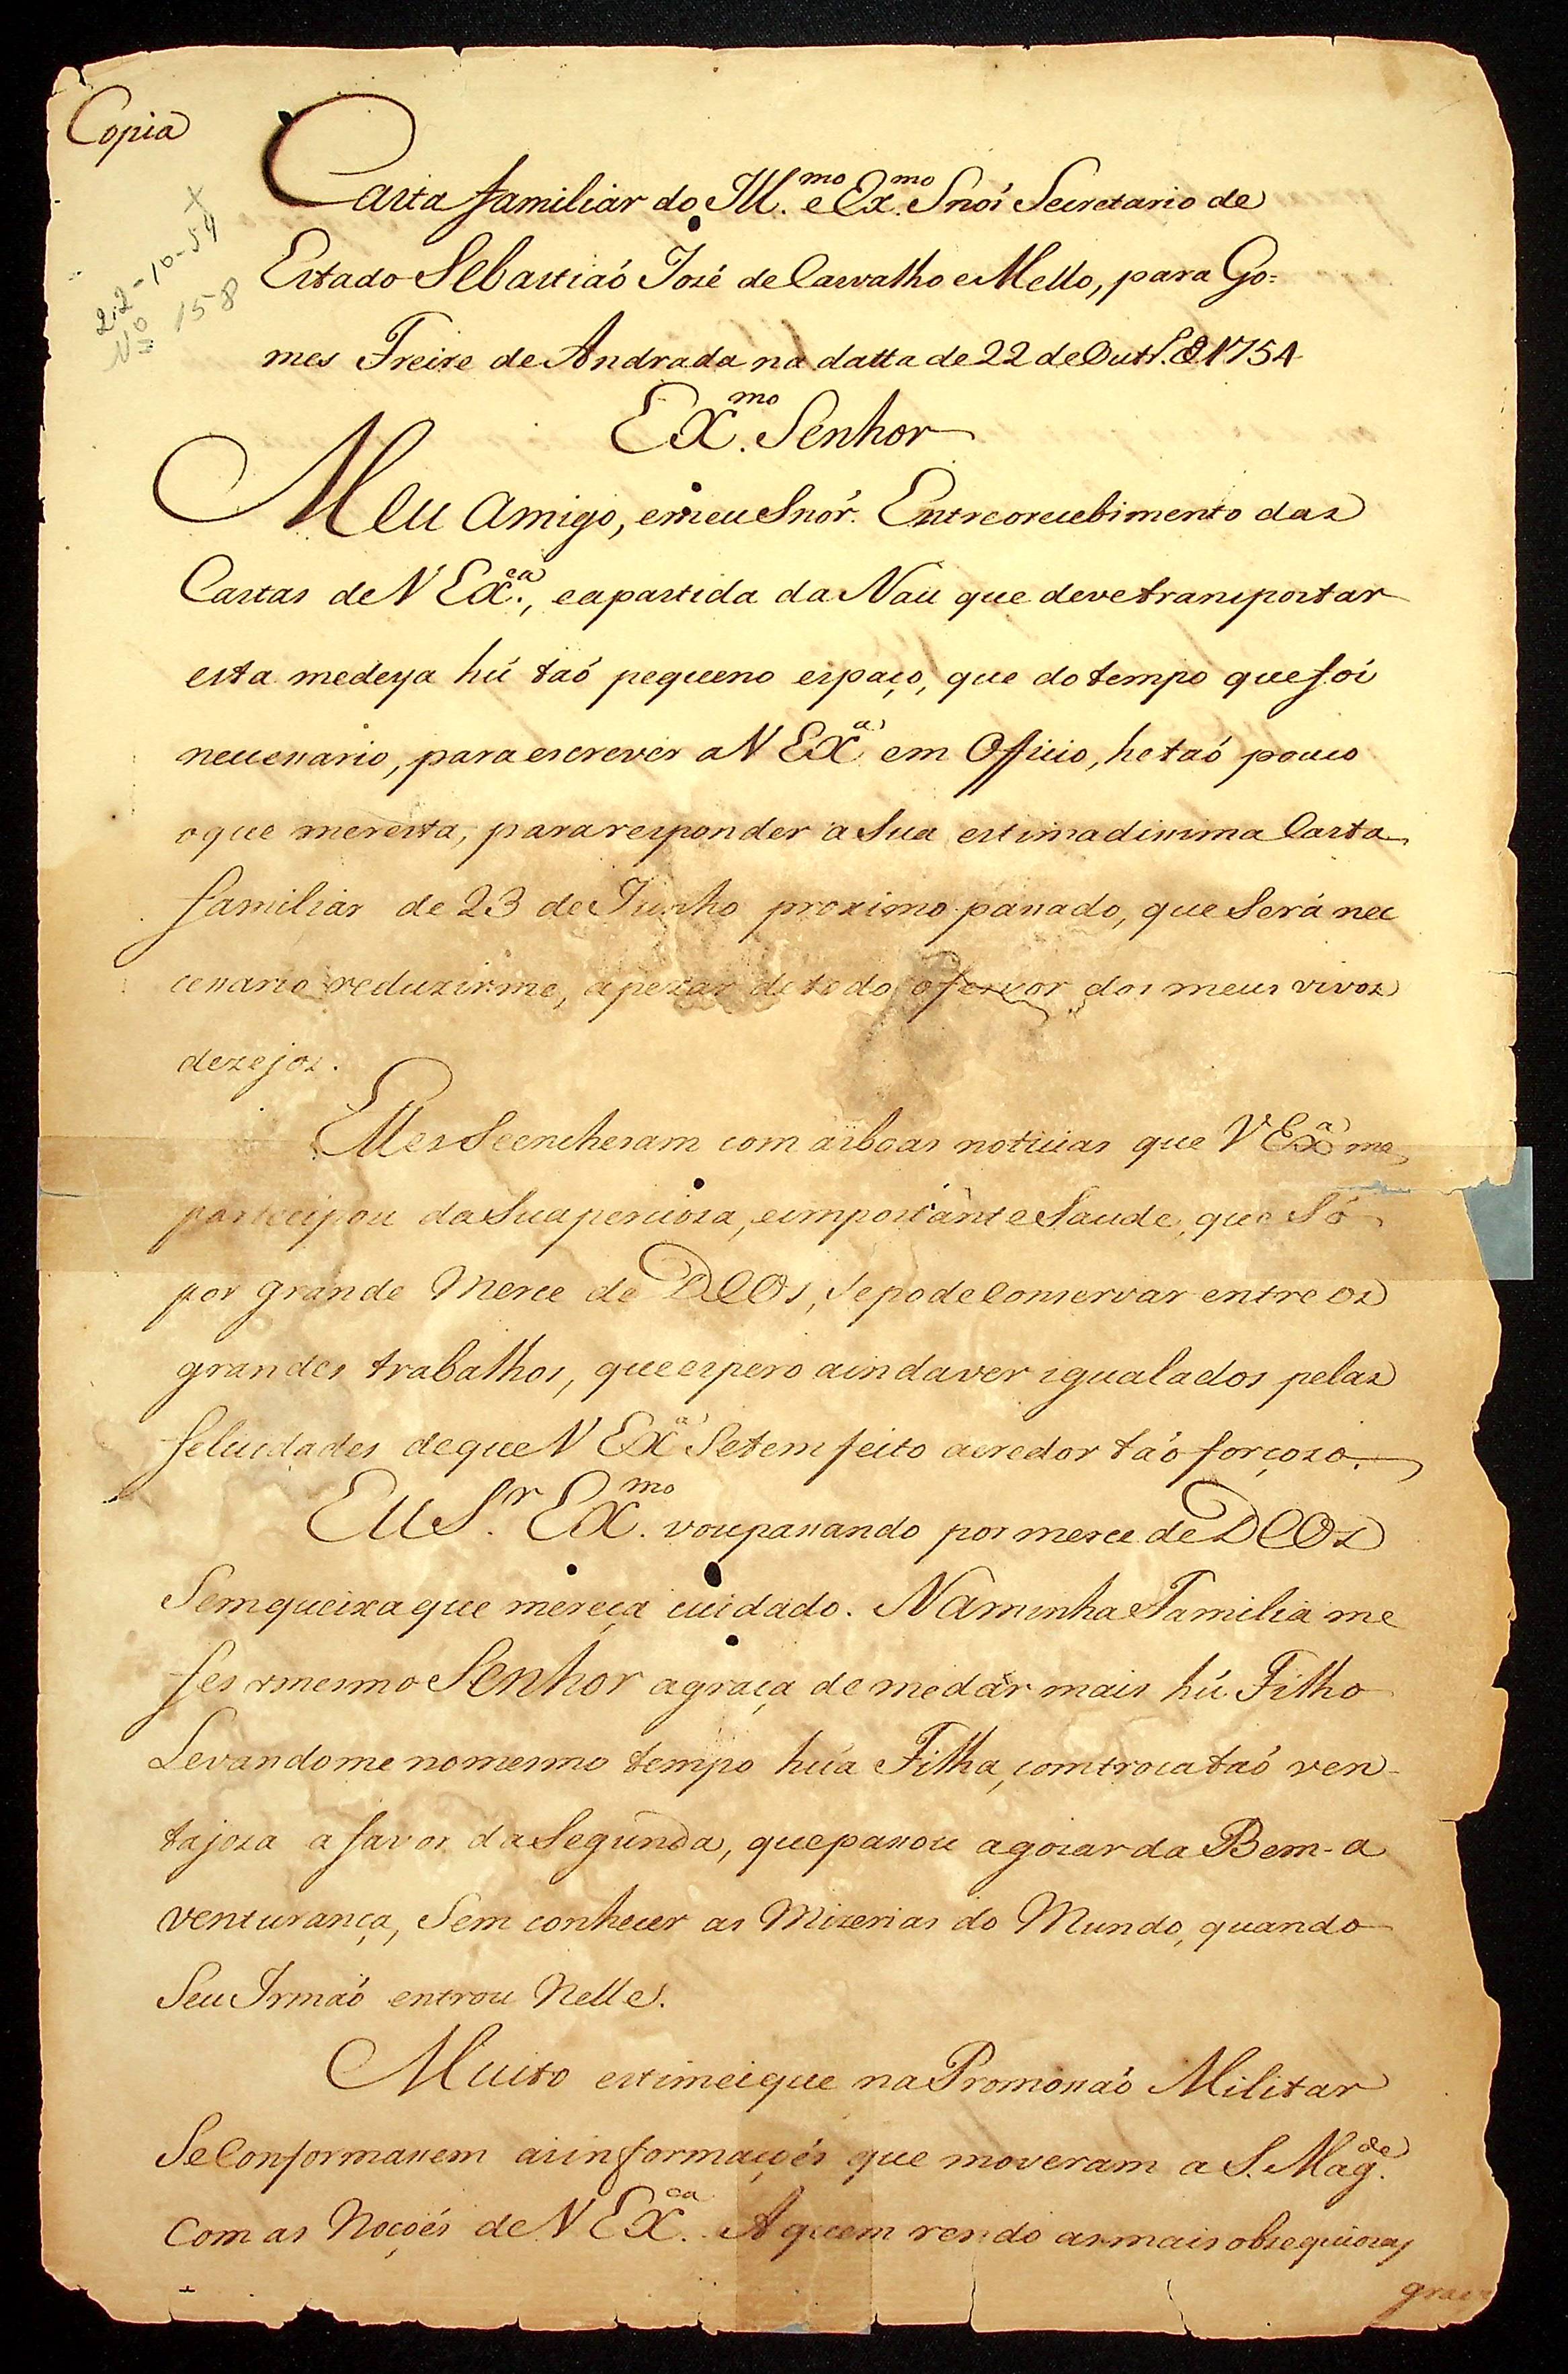 Copia
22-10-54
Nº 158
Carta familiar do Ill.mo e Ex.mo Snór Secretario de
Estado Sebastiaó José de Carvalho e Mello, para Go=
mes Freire de Andrada na datta de 22 de Outr.º de 1754
Ex.mo Senhor
Meu Amigo, emeu Snór. Entreorecebimento das
Cartas de V Ex.cia, eapartida da Nau que devetransportar
esta medeyxa hú taó pequeno espaço, que do tempo quefoi
neccessario, paraescrever a V Exa em Officio, hetaó pouco
oque meresta, pararesponder a Sua estimadissima Carta
familiar de 23 de Junho proximo passado, que Será nec
cessario reduzirme, apezar detodo ofervor dos meus vivos
dezejos.
Elles Seencheram com asboas noticias que V Exa me
participou da Sua percioza, eimportante Saude, que Só
por grande Merce de DEOs, Sepode Conservar entre os
grandes trabalhos, queespero aindaver igualados pelas
felicidades deque V Exa Setem feito acredor taó forçozo.
Eu S.r Ex.mo voupassando por merce de DEOs
Semqueixaque mereça cuidado. Naminha Familia me
fes omesmo Senhor agraça de medár mais hú Filho
Levandome nomesmo tempo húa Filha, comtrocataó ven-
tajoza a favor da Segunda, quepassou agozar da Bem-a
venturança, Sem conhecer as Mizerias do Mundo, quando
Seu Irmaó entrou Nelle.
Muito estimeique na Promossaó Militar
Se Conformassem asinformaçoés que moveram a S. Mag.de
Com as Noçoés de V Ex.ca A quem rendo asmais obsequiozas
graç